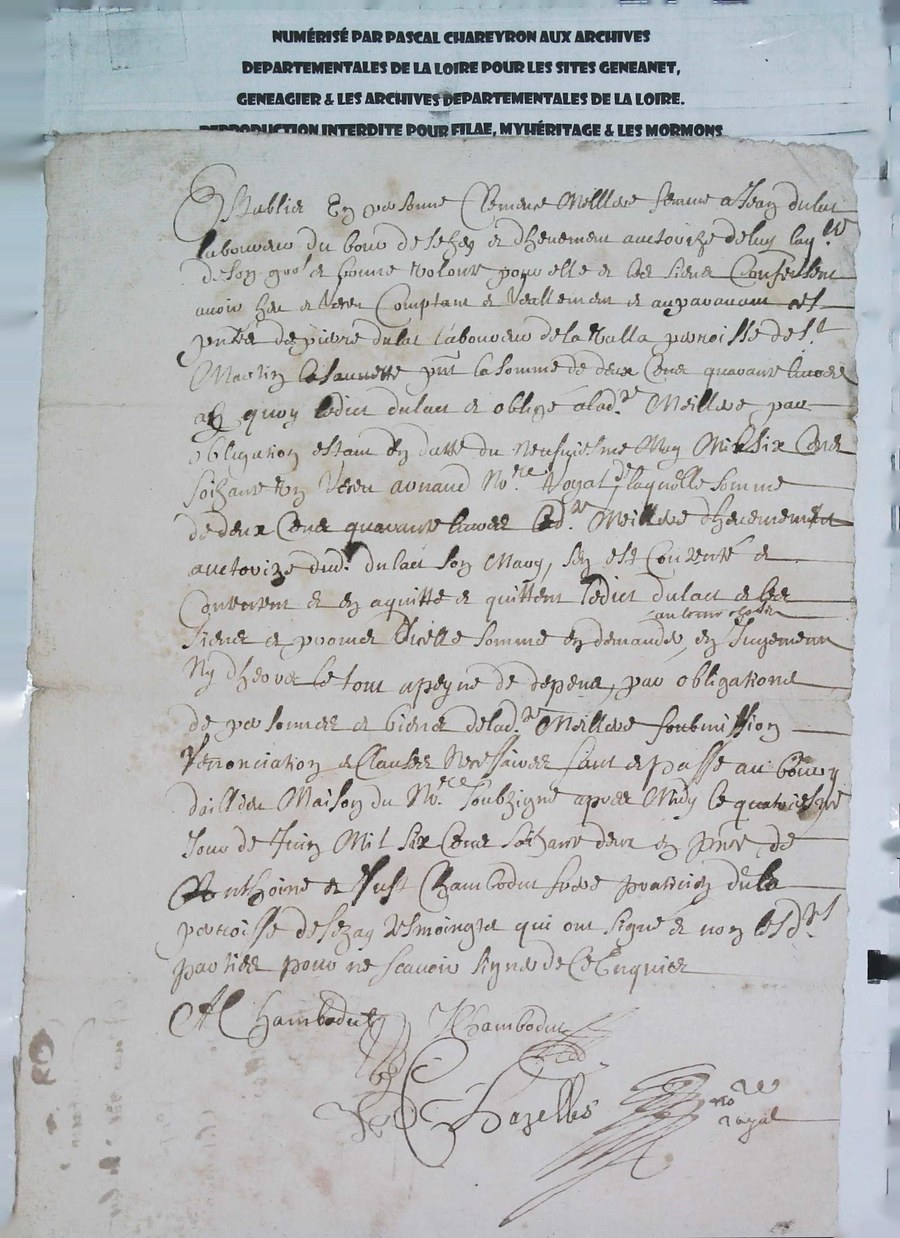 NUMÉRISÉ PAR PASCAL CHAREYRON AUX ARCHIVES
DEPARTEMENTALES DE LA LOIRE POUR LES SITES GENEANET,
GENEAGIER & LES ARCHIVES DEPARTEMENTALES DE LA LOIRE.
REPRODUCTION INTERDITE POUR FILAE, MYHÉRITAGE & LES MORMONS
Establie En personne Clemence Meillere femme a Jean dulac
laboureur du bour de sezay et dhuement auctorizé de luy laq.lle
de son gré et bonne volonté pour elle et les siens Confessent
avoir heu et receu Comptant et reallement et auparavant ces
p̃ntes de pierre dulac laboureur de la valla parroisse de S.t
Martin la sauveté p̃nt la somme de deux Cens quarante livres
en quoy ledict dulac et obligé a lad.te Meillere, par
obligation estant en datte du neufviesme May Mil six Cens
soixante un receu arnaud No.re royal, laquelle somme
de deux Cens quarante livres lad.te Meillere dheuement
auctorizé dud. dulac son Mary, sen est Contenté et
Contentent et en aquitte et quittent ledict dulac et les
siens et promet dicelle somme en demander, en Jugement
aulcune chose
Ny dhors le tout a peyne de depens, par obligations
de personnes et biens de lad.te Meillere soubmission
renonciation et Clauses Necessaires fait et passé au bourg
dallieu Maison du No.re soubzigné apres Midy le quatriesme
Jour de Juin Mil six Cens soixante deux en p̃nce de
Anthoine et Just Chambodut frere praticien de la
parroisse de sezay tesmoingts qui ont signé et non lesd.tes
parties pour ne scavoir signer de Ce Enquises
A Chambodut J Chambodut
Chazelles no.re
royal